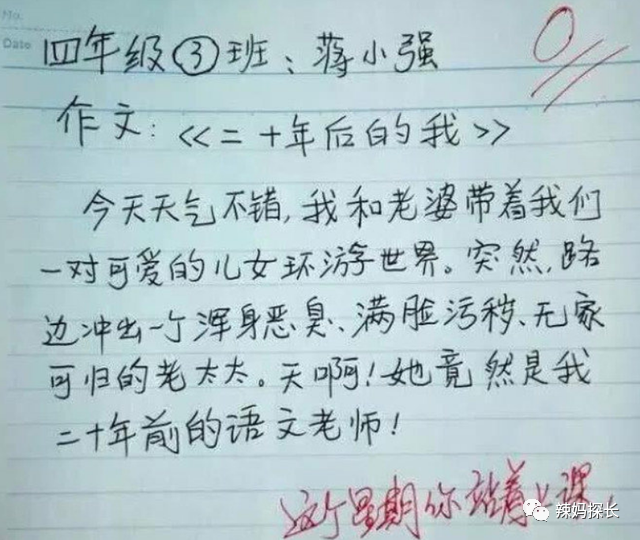 No.
Date
四年级③班：蒋小强
0
作文：<<二十年后的我>>
今天天气不错，我和老婆带着我们
一对可爱的儿女环游世界。突然，路
边冲出一个浑身恶臭、满脸污秽、无家
可归的老太太。天啊！她竟然是我
二十年前的语文老师！
这个星期你站着上课。
辣妈探长